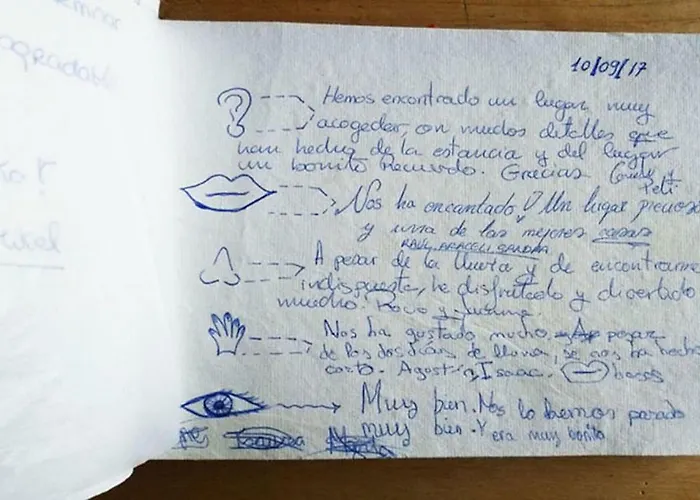 emnar
agradable
10/09/17
Hemos encontrado un lugar muy
acogedor, con muchos detalles que
han hecho de la estancia y del lugar
un bonito recuerdo. Gracias
Peti
Nos ha encantado! Un lugar precioso
y una de las mejores casas
RAUL, ARACELI, SANDRA
A pesar de la lluvia y de encontrarme
indispuesta, he disfrutado y divertido
mucho. Rocio y
Nos ha gustado mucho. A pesar
de los dos días de lluvia, se nos ha hecho
corto. Agustín, Isaac. besos
Muy bien. Nos lo hemos pasado
muy bien. Y era muy bonito